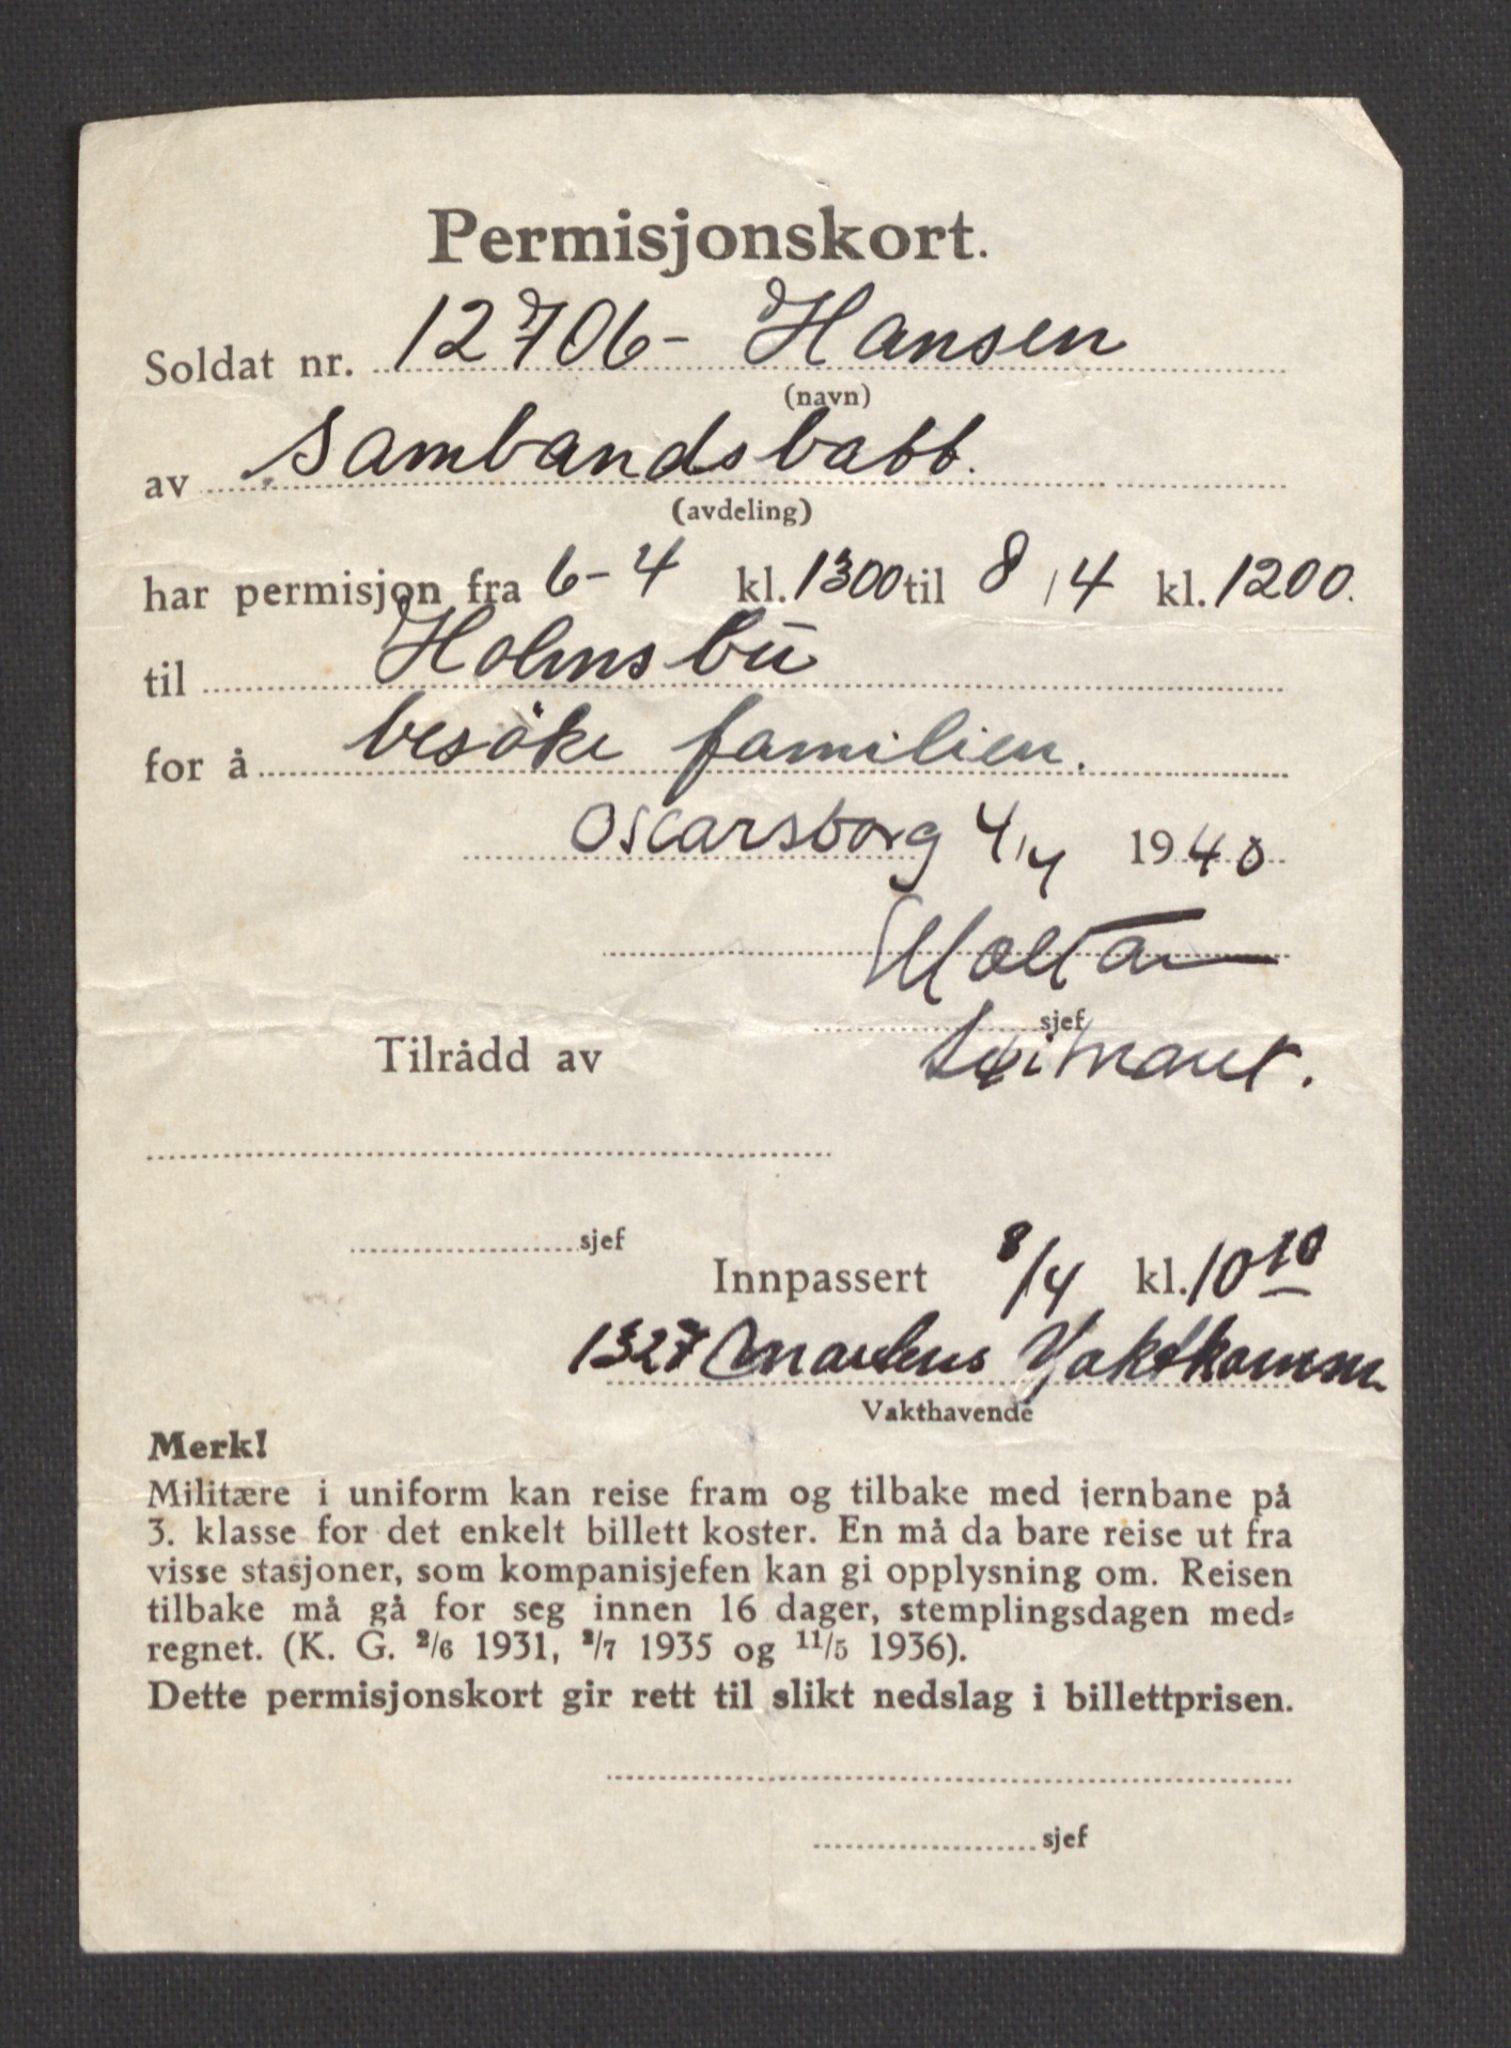 Permisjonskort.
Soldat nr. 12706 - Hansen
(navn)
av Sambandsbatt.
(avdeling)
har permisjon fra 6-4 kl. 1300 til 8/4 kl. 1200.
til Holmsbu
for å besöke familien.
Oscarsborg 4/4 1940
sjef
Tilrådd av
sjef
Innpassert 8/4 kl. 10 10
1327 Markus Vaktkomm.
Vakthavende
Merk!
Militære i uniform kan reise fram og tilbake med jernbane på
3. klasse for det enkelt billett koster. En må da bare reise ut fra
visse stasjoner, som kompanisjefen kan gi opplysning om. Reisen
tilbake må gå for seg innen 16 dager, stemplingsdagen med-
regnet. (K. G. 2/6 1931, 2/7 1935 og 11/5 1936).
Dette permisjonskort gir rett til slikt nedslag i billettprisen.
sjef